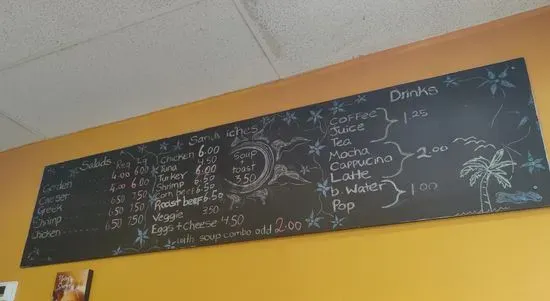 Salads Reg Lg
Garden 4.00 6.00
Caeser 4.00 6.00
Greek 6.50 7.50
Shrimp 6.50 7.50
Chicken 6.50 7.50
Sandwiches
Chicken 6.00
Tuna 4.50
Turkey 6.00
Shrimp 6.50
Corn beef 6.50
Roast beef 6.50
Veggie 3.50
Eggs + Cheese 4.50
with soup combo add 2.00
Soup
+
toast
3.50
Drinks
Coffee
Juice 1.25
Tea
Mocha
Cappucino 2.00
Latte
b. Water 1.00
Pop